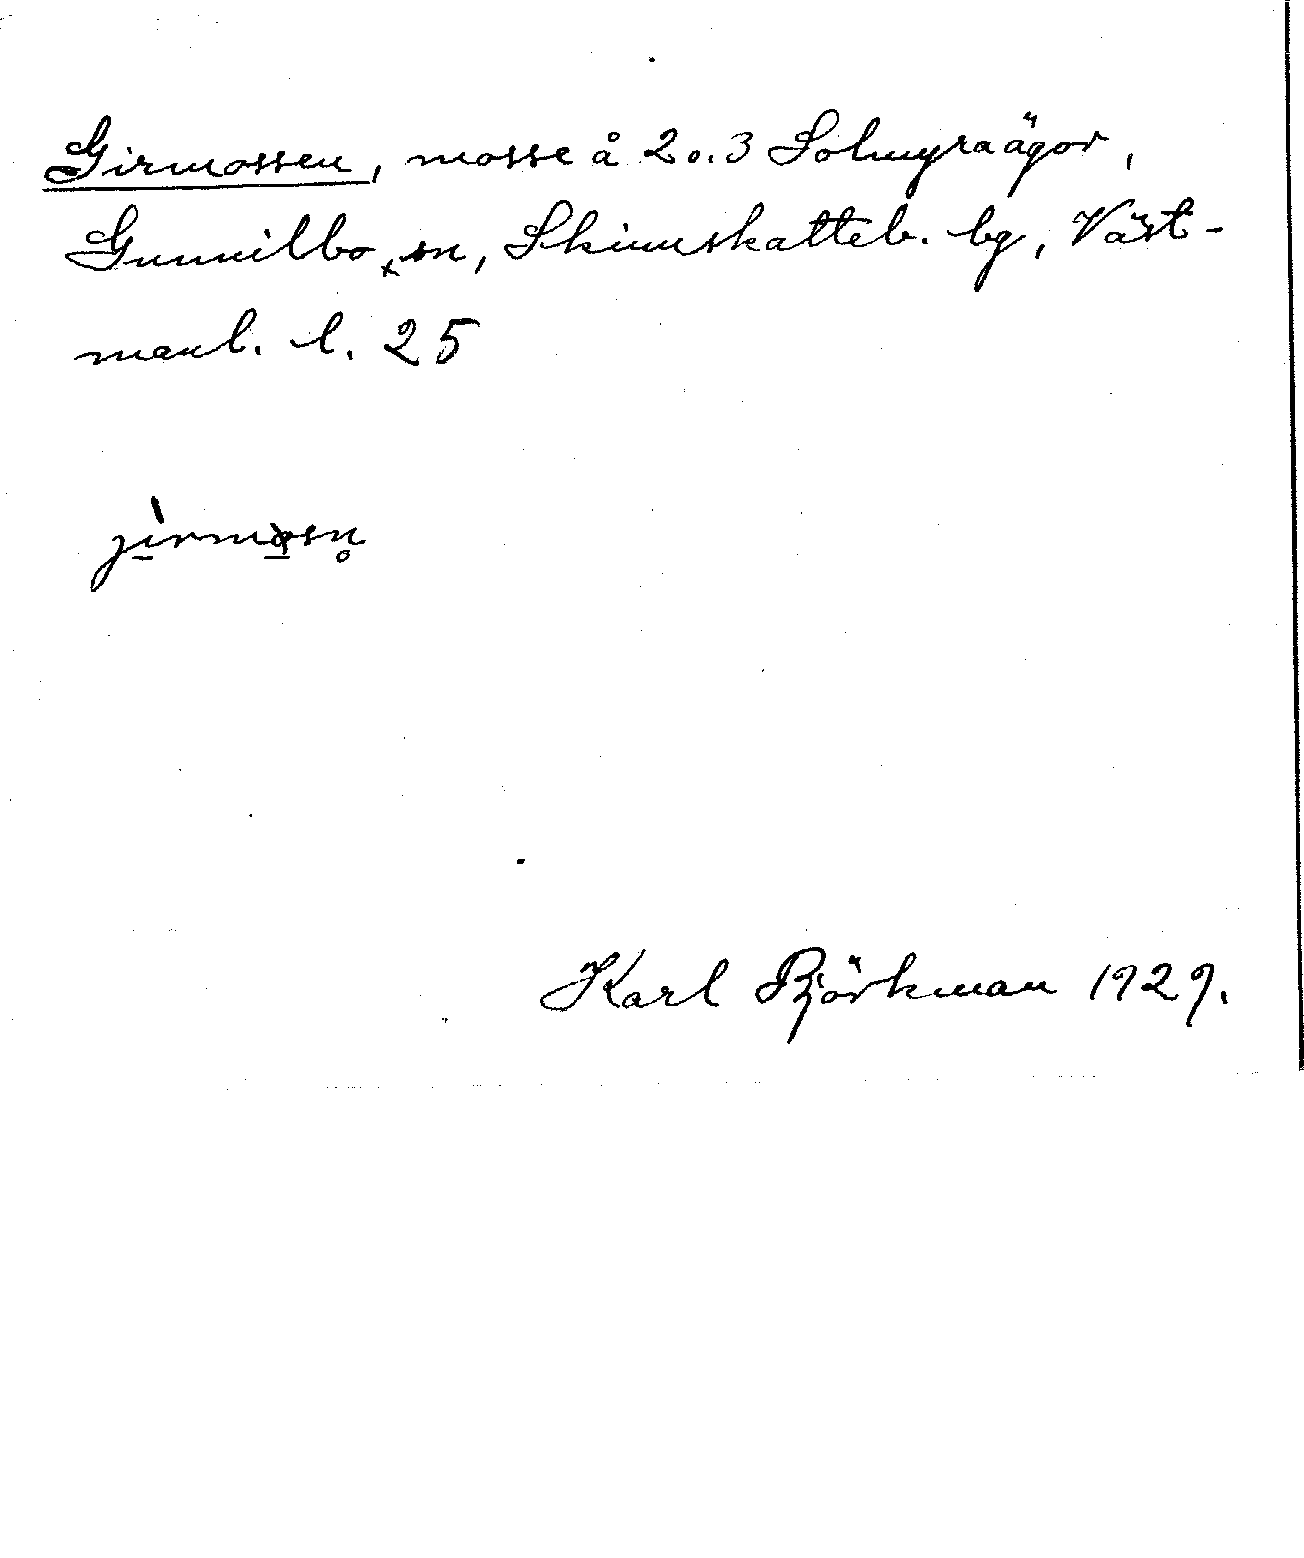 Girmossen, mosse å 2 o. 3 Solmyraägor,
Gunnilbo sn, Skinnskatteb. bg, Väst-
manl. l. 25
Karl Björkman 1929.